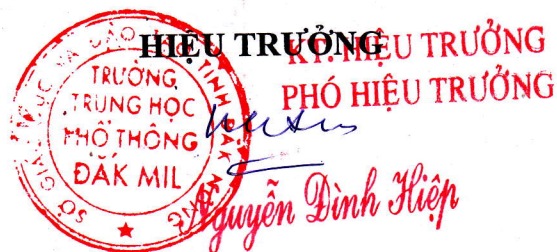 HIỆU TRƯỞNG
KT. HIỆU TRƯỞNG
PHÓ HIỆU TRƯỞNG
SỞ GIÁO DỤC VÀ ĐÀO TẠO TỈNH ĐĂK NÔNG
TRƯỜNG
TRUNG HỌC
PHỔ THÔNG
ĐĂK MIL
Nguyễn Đình Hiệp